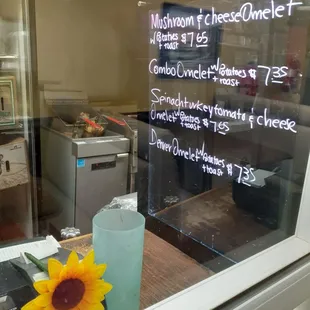 Mushroom & cheese Omelet
w/ Potatoes + toast $7.65
Combo Omelet w/ Potatoes + toast $7.35
Spinach turkey tomato & cheese
Omelet w/ Potatoes + toast $7.65
Denver Omelet w/ Potatoes + toast $7.35